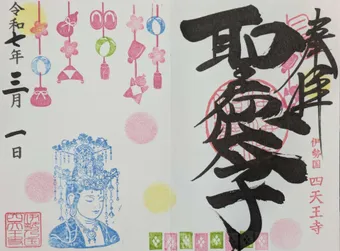 奉拝
聖徳太子
伊勢国 四天王寺
令和七年 三月 一日